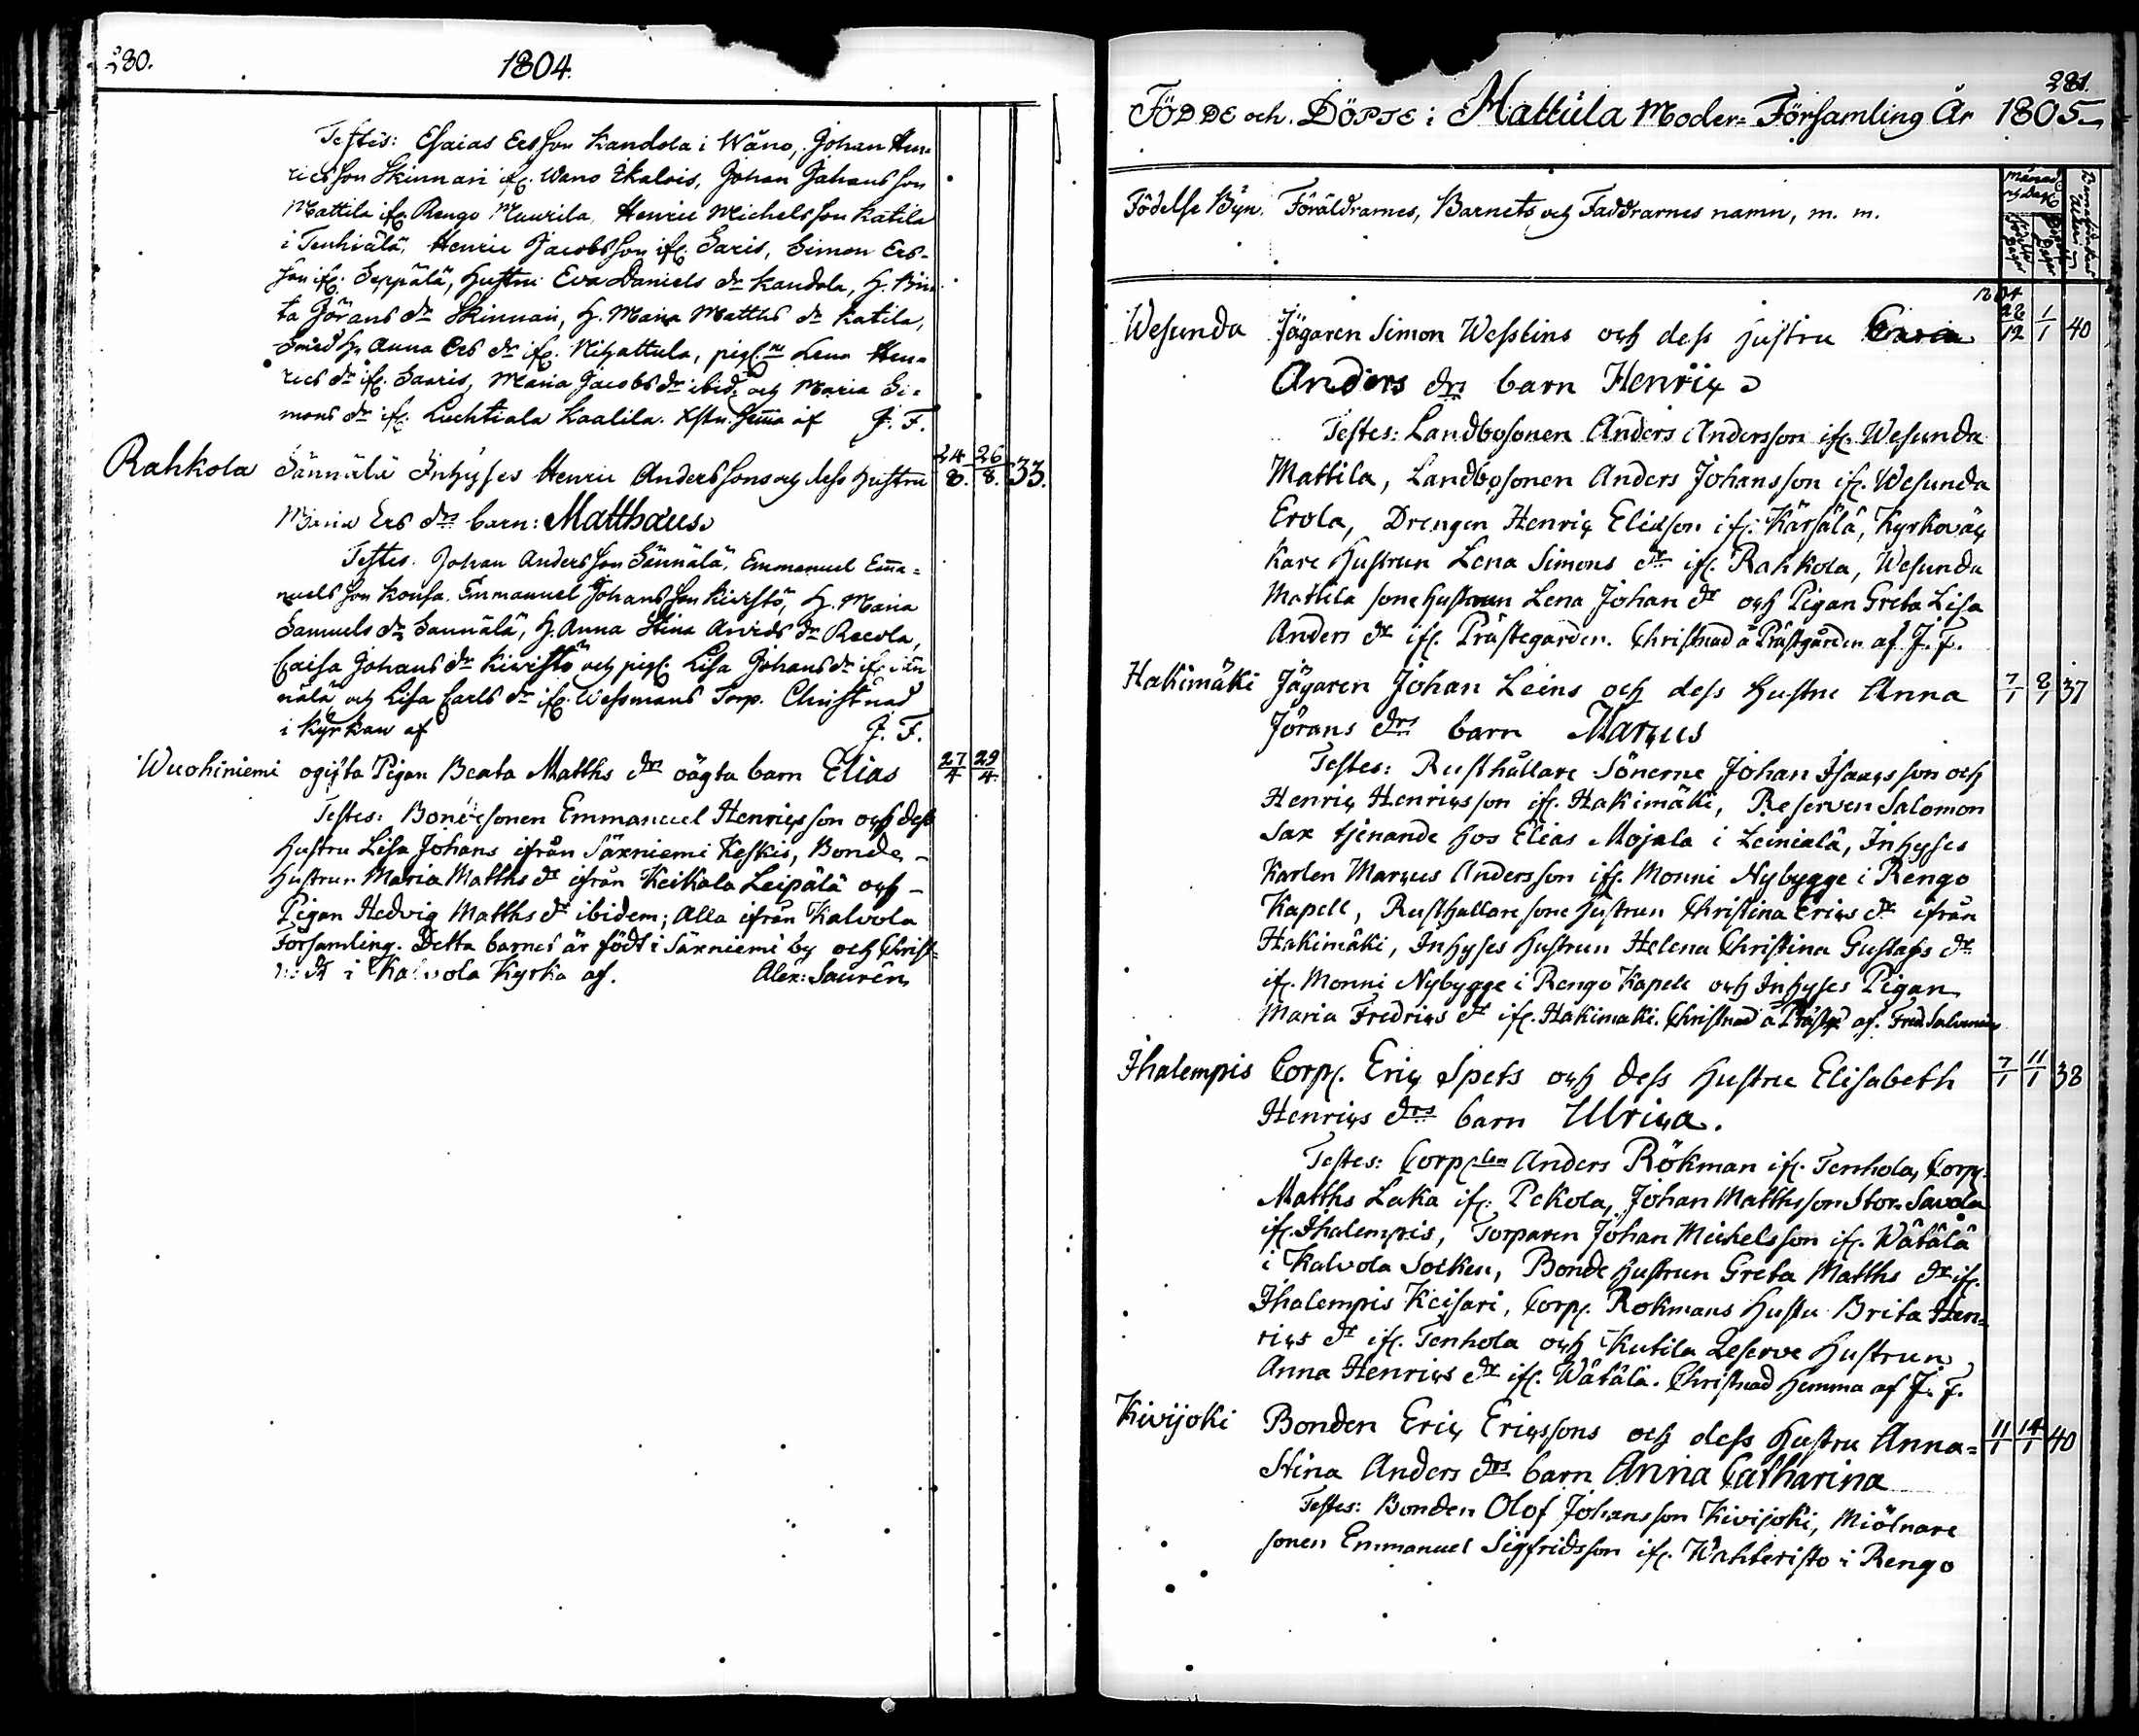 280.
1804.
Testes: Esaias Ersson Kandola i Wåno, Johan Hen-
ricsson Skinnari ifr. Wano Ekalois, Johan Johansson
Mattila ifr. Rengo Maurila, Henric Michelsson Katila
i Tenhiälä, Henric Jacobsson ifr. Saris, Simon Ers-
son ifr. Seppälä, Hustru Eva Daniels dr Kandola, H. Bri-
ta Görans dr Skinnari, H. Maria Matths dr Katila,
Smed H. Anna Ers dr ifr. Nihattula, pig. Lena Hen-
rics dr ifr. Saaris, Maria Jacobs dr ibid. och Maria Si-
mons dr ifr. Luchtiala Kaalila. Xstn. hema af J. F.
Rahkola Sännälä Inhyses Henric Anderssons och dess hustru 24/8. 26/8. 33.
Maria Ers drs barn: Matthæus
Testes. Johan Andersson Sännälä, Emmanuel Ema-
nuelsson Kousa. Emmanuel Johansson Kivistö, H. Maria
Samuels dr Sannälä, H. Anna Stina Arvids dr Recola,
Caisa Johans dr Kivistö och pig. Lisa Johans dr ifr. Sän
nälä och Lisa Carls dr ifr. Wessmans Torp. Christnad
i Kyrkan af J. F.
Wuohiniemi ogifta Pigan Beata Matths drs oägta barn Elias 27/4 29/4.
Testes: Bondesonen Emmanuel Henricsson och dess
Hustru Lisa Johans ifrån Säxniemi Keskis, Bonde-
Hustrun Maria Matths dr ifrån Keikala Leipälä och
Pigan Hedvig Matths dr ibidem; Alla ifrån Kalvola
Församling. Detta barnet är födt i Säxniemi by och Christ-
nadt i Kalvola Kyrka af. Alex: Saurén
281.
Födde och Döpte i Mattula Moder-Församling År 1805
Födelse Byn. Föräldrarnes, Barnets och Faddrarnes namn, m. m.
1804
Wesunda Jägaren Simon Wesslins och dess hustru Caisa 28/12 1/1 40
Anders drs barn Henric
Testes: Landbosonen Anders Andersson ifr. Wesunda
Mattila, Landbosonen Anders Johansson ifr. Wesunda
Erola, Drengen Henric Eliæson ifr. Kärsälä, Kyrkoväc
kare Hustrun Lena Simons dr ifr. Rahkola, Wesunda
Mattila sonehustrun Lena Johan dr och Pigan Greta Lisa
Anders dr ifr. Prästegården. Christnad å Prästgården af J. F.
Hakimäki Jägaren Johan Leins och dess Hustru Anna 7/1 8/1 37
Jörans drs barn Marcus
Testes: Rusthållare Sönerne Johan Isacsson och
Henric Henricsson ifr. Hakimäki, Reserven Salomon
Sax tjenande hos Elias Mojala i Leinialä, Inhyses
Karlen Marcus Andersson ifr. Monni Nybygge i Rengo
Kapell, Rusthallare sone hustrun Christina Erics dr ifrån
Hakimäki, Inhyses Hustrun Helena Christina Gustafs dr
ifr. Monni Nybygge i Rengo Kapell och Inhyses Pigan
Maria Fredrics dr ifr. Hakimaki. Christnad å Prästg. af. Fred. Salvenius
Ihalempis Corp. Eric Spets och dess Hustru Elisabeth 7/1 11/1 38
Henrics drs barn Ulrica.
Testes: Corp len Anders Rökman ifr. Tenhola, Corp.
Matths Laka ifr. Pekola, Johan Mathsson Stor-Savola
ifr. Ihalempis, Torparen Johan Michelsson ifr. Wätälä
i Kalvola Socken, Bonde hustrun Greta Matths dr ifr.
Ihalempis Keisari, Corp. Rokmans Hustru Brita Hen-
rics dr ifr. Tenhola och Kutila Reserve Hustrun
Anna Henrics dr ifr. Wätälä. Christnad hemma af J. F.
Kivijoki Bonden Eric Ericssons och dess Hustru Anna- 11/1 14/1 40
Stina Anders drs barn Anna Catharina
Testes: Bonden Olof Johansson Kivijoki, Miölnare
sonen Emmanuel Sigfridsson ifr. Wahteristo i Rengo